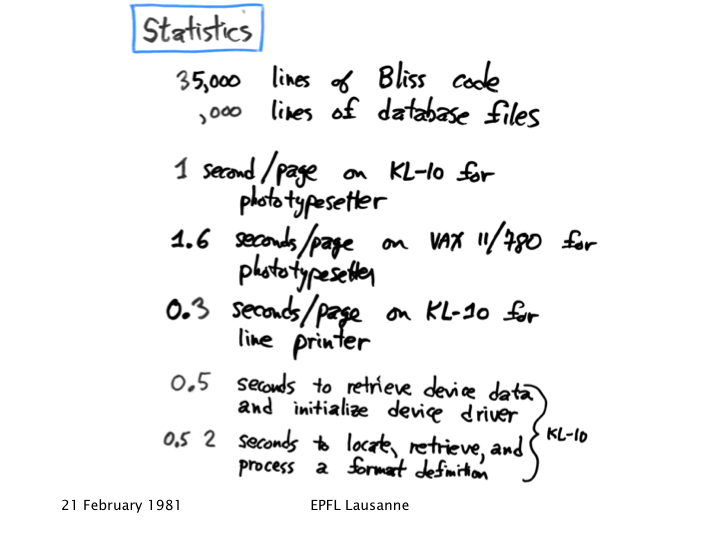 Statistics
35,000 lines of Bliss code
,000 lines of database files
1 second/page on KL-10 for
phototypesetter
1.6 seconds/page on VAX 11/780 for
phototypesetter
0.3 seconds/page on KL-10 for
line printer
0.5 seconds to retrieve device data
and initialize device driver
0.5 2 seconds to locate, retrieve, and
process a format definition
KL-10
21 February 1981
EPFL Lausanne